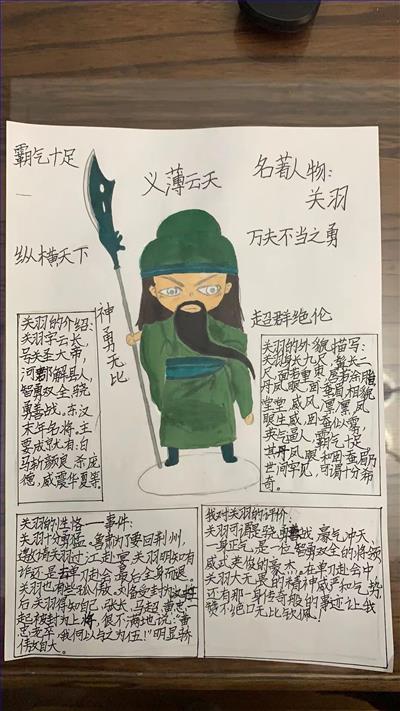 霸气十足
义薄云天
名著人物:
关羽
纵横天下
万夫不当之勇
神勇无比
超群绝伦
关羽的介绍:
关羽字云长,
号关圣大帝,
河郡解县人,
智勇双全,骁
勇善战。东汉
末年名将。主
要成就有:白
马斩颜良,水淹
德,威震华夏等
关羽的外貌描写:
关羽身长九尺,髯长二
尺,面若重枣,唇若
丹凤眼,卧蚕眉,相貌
堂堂,威风凛凛。凤
眼生威,卧蚕似雾,
英气逼人,霸气十足
其丹凤眼和卧蚕眉乃
世间罕见,可谓十分稀
奇。
关羽的性格——事件:
关羽十分勇猛。鲁肃为了要回荆州,
邀请关羽过江赴宴,关羽明知有
诈还是单刀赴会,最后全身而退。
关羽也有些骄傲。刘备受封为汉中王
后,关羽得知自己,张飞,马超,黄忠一
起被封为上将,很不满地说:"黄
忠老卒,我何以与之为伍!"明显骄
傲自大。
我对关羽的评价:
关羽可谓骁勇善战,豪气冲天,
一身正气,是一位智勇双全的将领
威武英俊的豪杰。在单刀赴会中
关羽大无畏的精神,威严和气势,
还有那一身传奇般的事迹,让我
赞不绝口,无比钦佩!